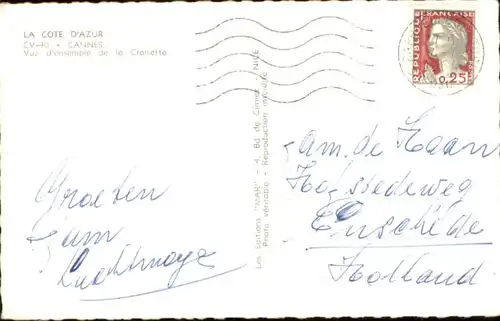 LA COTE D'AZUR
CV-40 - CANNES
Vue d'ensemble de la Croisette
Groeten
Fam
Les Editions "MAR" - 4, Bd de Cimiez - NICE
Photo véritable - Reproduction interdite
REPUBLIQUE FRANÇAISE
0,25
Fam. de Haan
Hofstedeweg
Enschede
Holland